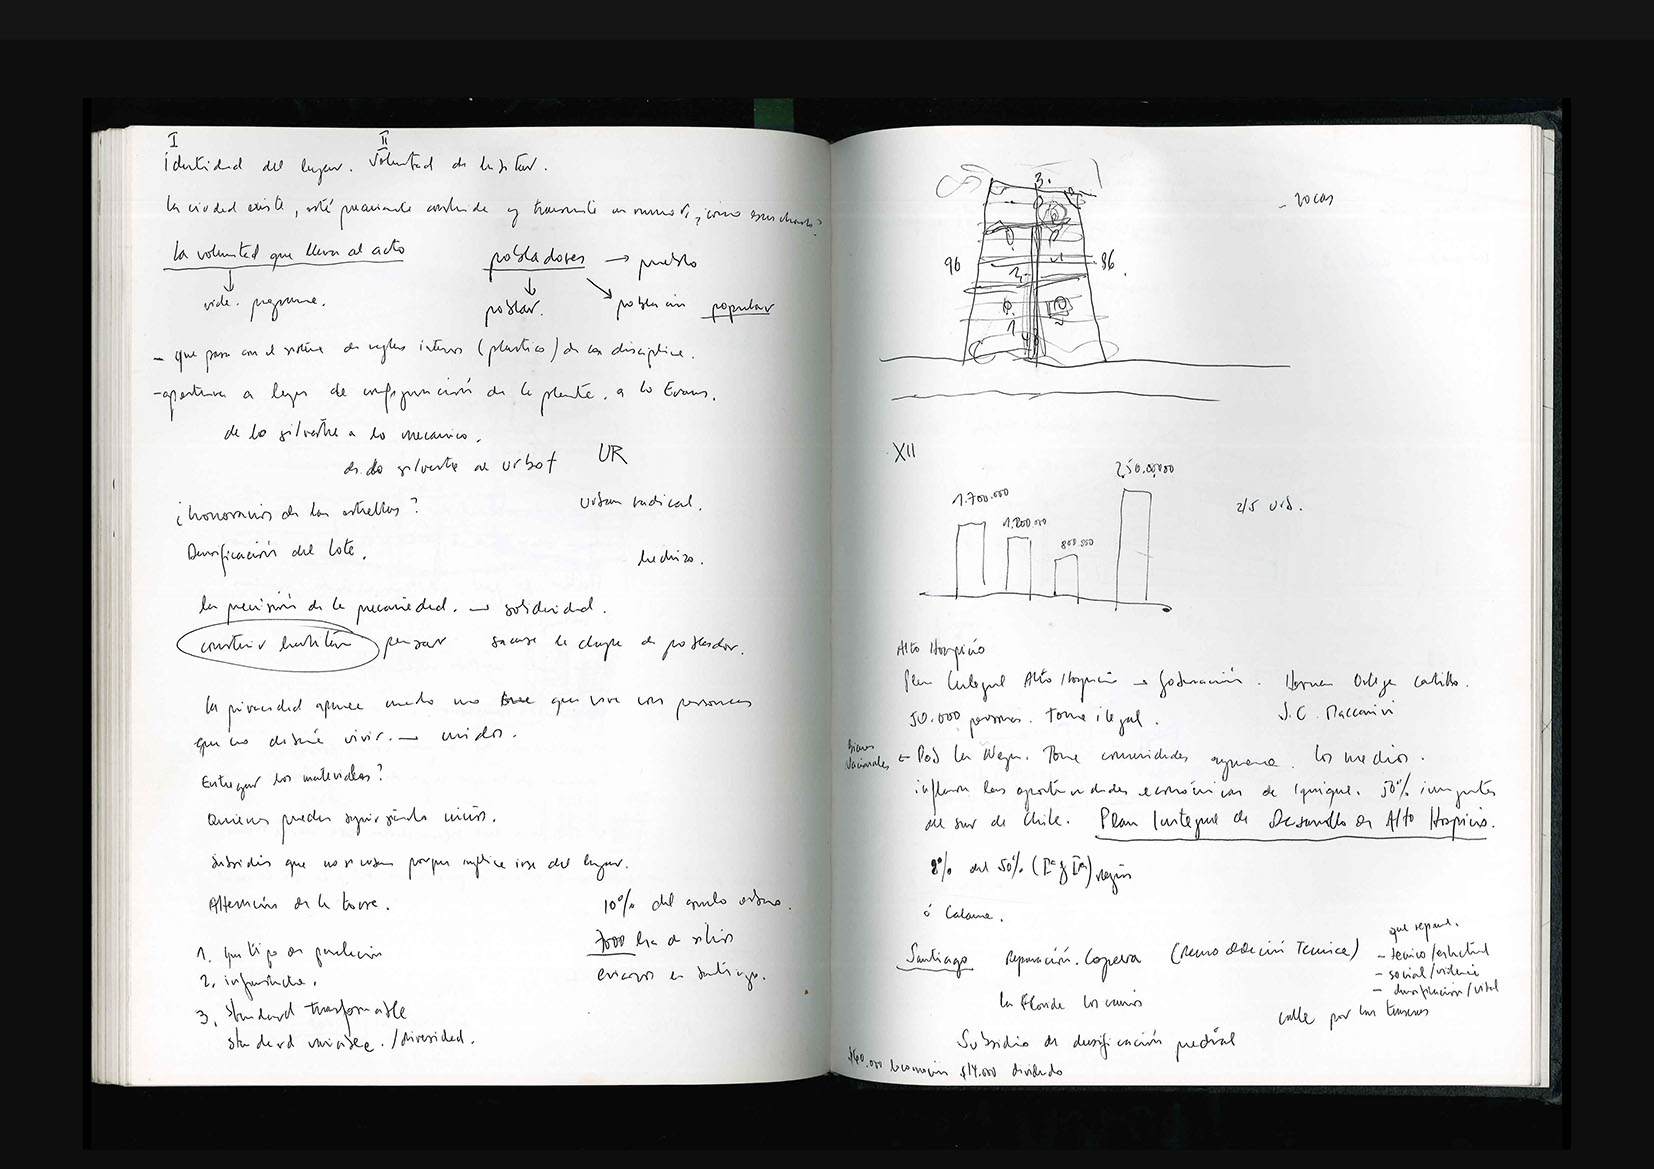 I II
Identidad del lugar. Voluntad de habitar.
la ciudad existe, está precariamente construida y transmite un rumor, ¿cómo escucharlo?
la voluntad que lleva al acto
pobladores → pueblo
vida. programa.
poblar. población popular
- que pasa con el sistema de reglas internas (plástico) de la disciplina.
- apertura a leyes de configuración de la planta. a lo Evans.
de lo silvestre a lo mecánico.
de lo silvestre al urbot UR
¿honorarios de las estrellas? urban radical.
Densificación del lote. hechizo.
la precisión de la precariedad. → solidaridad.
construir habitar pensar sacarse la chapa de poblador.
la privacidad aparece cuando uno que vive con personas
que no desea vivir. → unidos.
Entregar los materiales?
Quienes pueden seguir siendo vecinos.
Subsidios que no se usan porque implica irse del lugar.
Alteración de la torre. 10% del suelo urbano.
7000 ha de sitios
eriazos en Santiago.
1. que tipo de población
2. infraestructura.
3. Standard transformable
Standard /diversidad.
3.
96 96
- rocas
XII
1.700.000
1.200.000
800.000
2/5 urb.
Alto Hospicio
Plan Integral Alto Hospicio → Gobernación. Hernan Ortega Castillo.
50.000 personas. toma ilegal. J.C. Maccarini
Bienes Nacionales ← Pod la Negra. Toma comunidades aymara. los medios.
inflaron las oportunidades económicas de Iquique. 50% inmigrantes
del sur de Chile. Plan Integral de Desarrollo de Alto Hospicio.
8% del 50% (Iª y IIª) región
ó Calama.
Santiago Reparación. Copeva (Remodelación Tecnica)
que reparar.
- tecnico/estructural
- social/violencia
- densificación/vital
la Florida los
calle por las
Subsidio de densificación predial
$14.000 dividendo